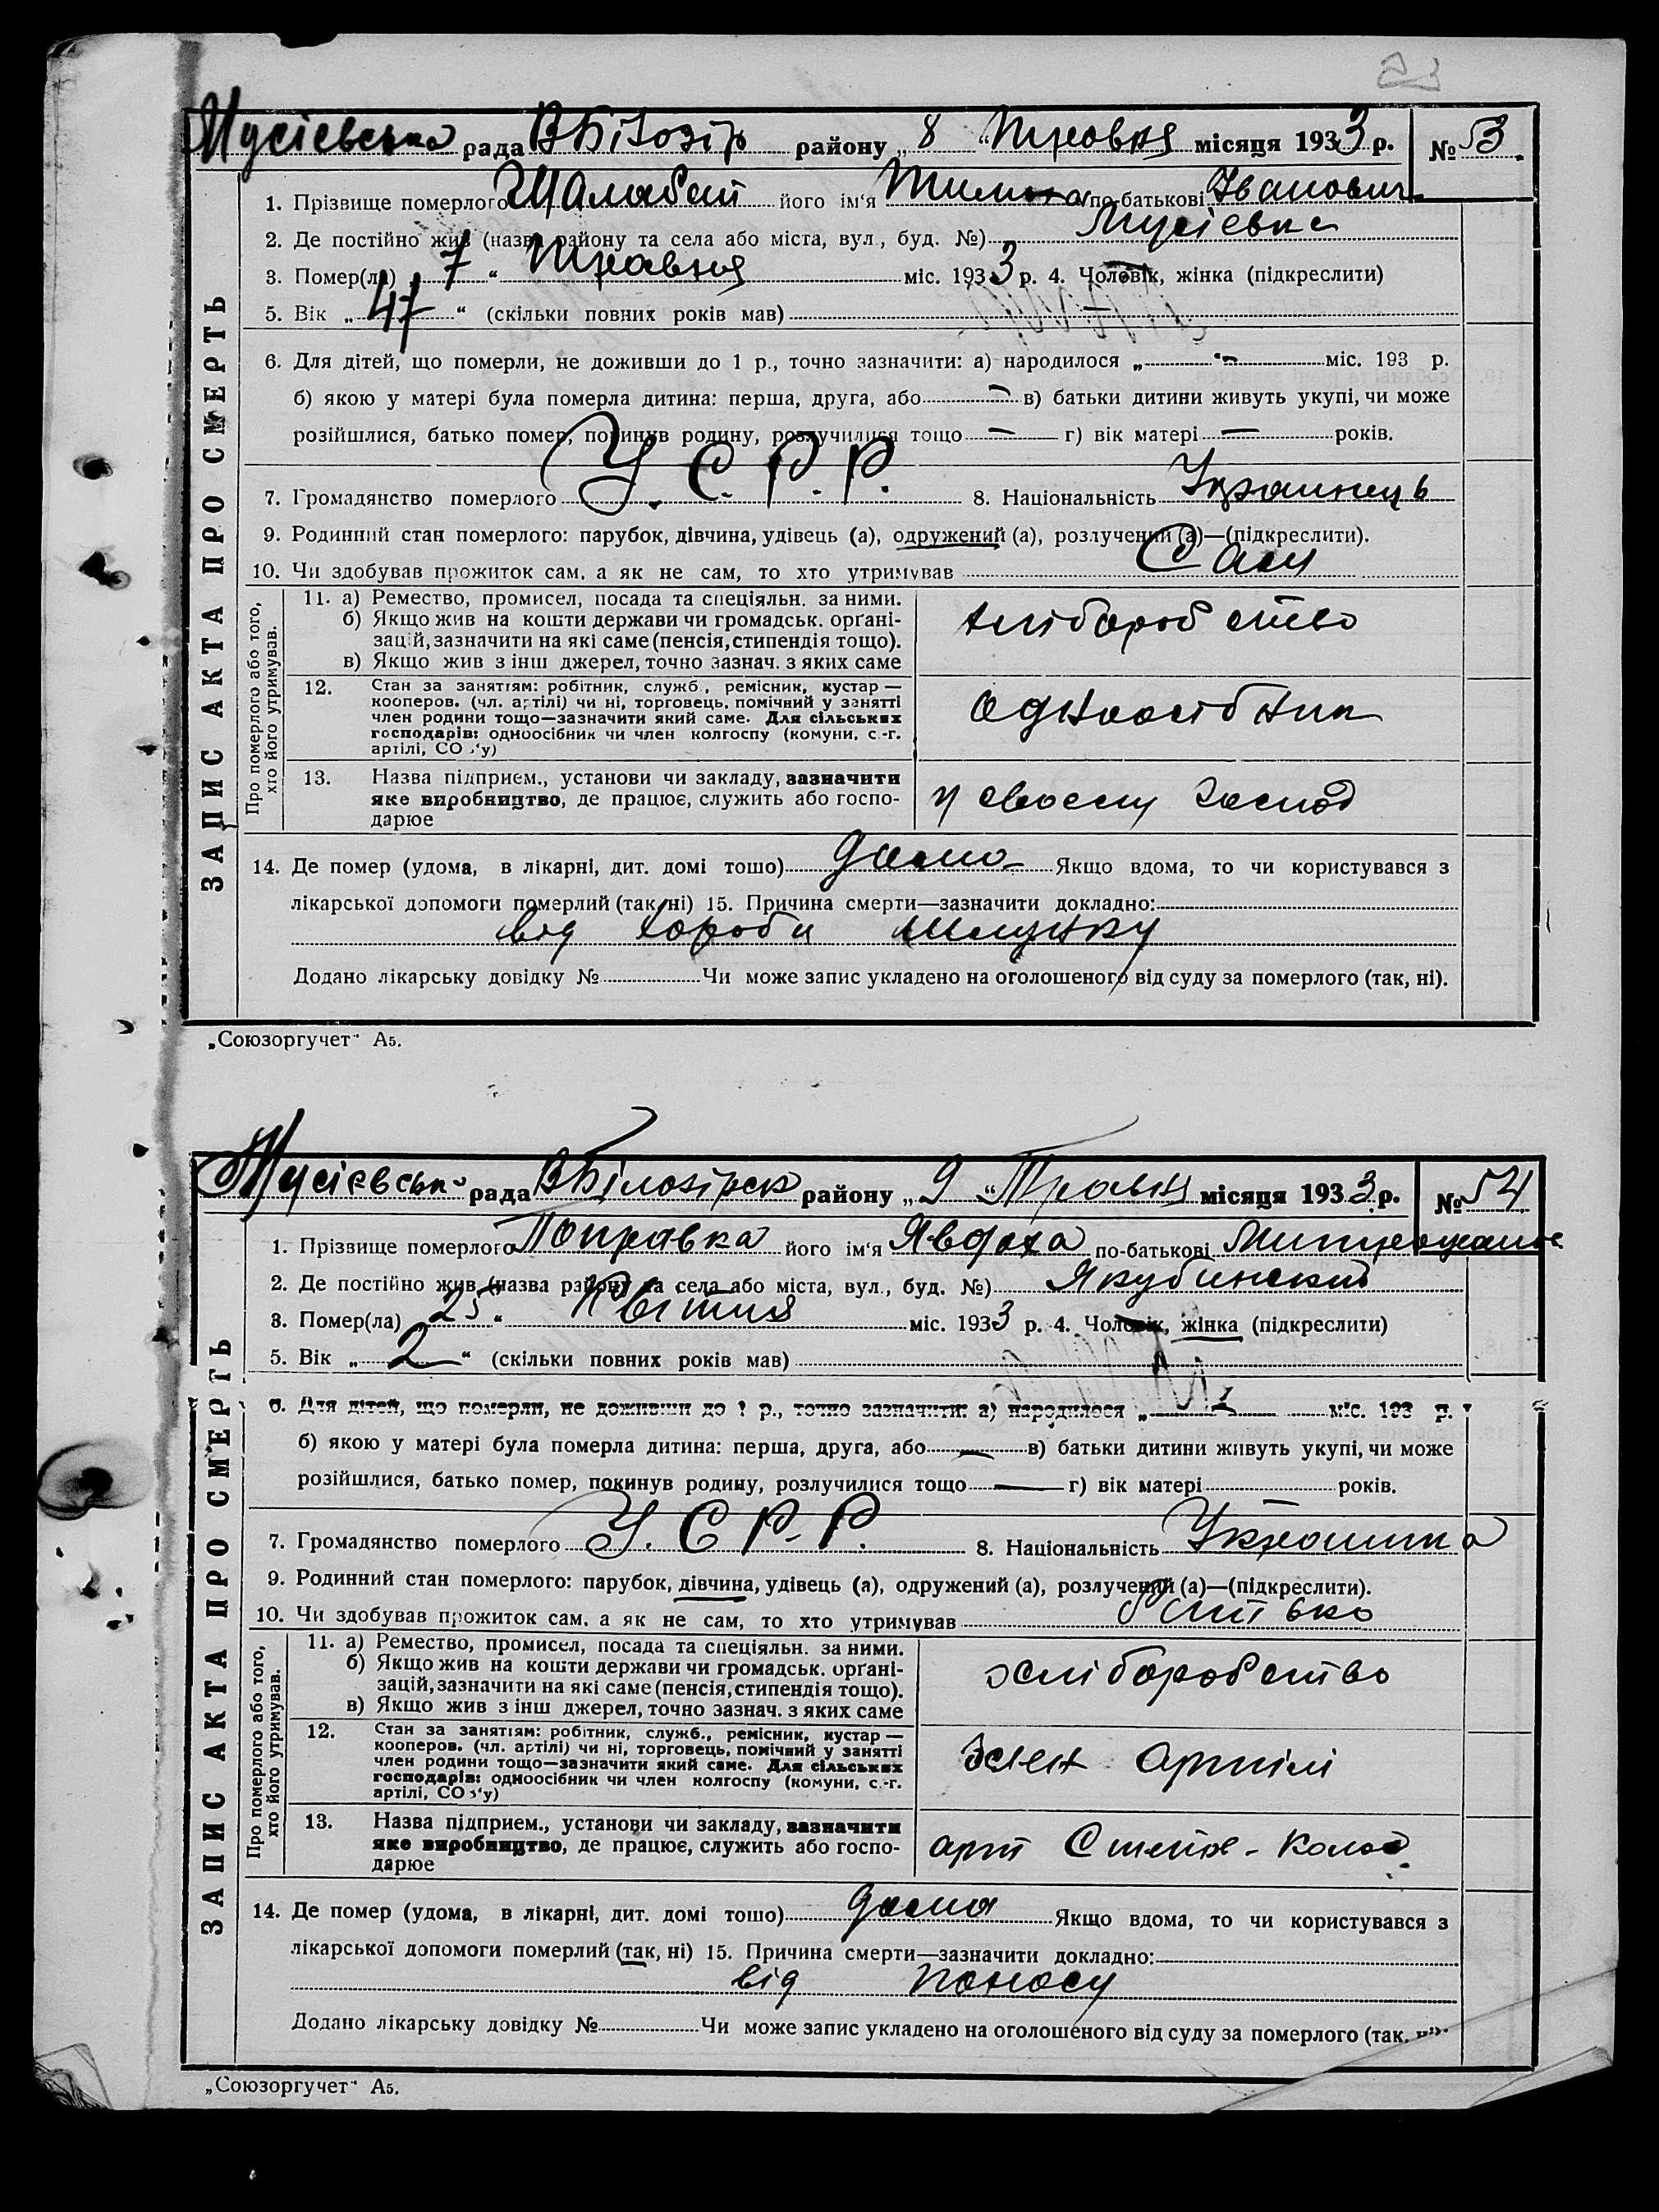 23
Мусієвська рада ВБілозір району „ 8 “ Травня місяця 1933 р. № 53
1. Прізвище померлого Шалабай його ім‘я по-батькові Іванович
2. Де постійно жив (назва району та села або міста, вул., буд. №) Мусіевка
3. Помер(ла) „ 7 “ Травня міс. 1933 р. 4. Чоловік, жінка (підкреслити)
5. Вік „ 47 “ (скільки повних років мав)
6. Для дітей, що померли, не доживши до 1 р., точно зазначити: а) народилося „ “ – міс. 193 р.
б) якою у матері була померла дитина: перша, друга, або – в) батьки дитини живуть укупі, чи може
розійшлися, батько помер, покинув родину, розлучилися тощо — г) вік матері — років.
7. Громадянство померлого У.С.Р.Р. 8. Національність Українець
9. Родинний стан померлого: парубок, дівчина, удівець (а), одружений (а), розлучений (а)—(підкреслити).
10. Чи здобував прожиток сам, а як не сам, то хто утримував Сам
ЗАПИС АКТА ПРО СМЕРТЬ
Про померлого або того, хто його утримував.
11. а) Ремество, промисел, посада та спеціяльн. за ними.
б) Якщо жив на кошти держави чи громадськ. орґані-
зацій, зазначити на які саме (пенсія, стипендія тощо).
в) Якщо жив з інш джерел, точно зазнач. з яких саме
хліборобство
12. Стан за заняттям: робітник, служб., ремісник, кустар —
кооперов. (чл. артілі) чи ні, торговець, помічний у занятті
член родини тощо—зазначити який саме. Для сільських
господарів: одноосібник чи член колгоспу (комуни, с.-г.
артілі, СОЗ‘у)
одноосібник
13. Назва підприєм., установи чи закладу, зазначити
яке виробництво, де працює, служить або госпо-
дарює
у своєму господ
14. Де помер (удома, в лікарні, дит. домі тошо) дома Якщо вдома, то чи користувався з
лікарської допомоги померлий (так, ні) 15. Причина смерти—зазначити докладно:
від хороби шлунку
Додано лікарську довідку № Чи може запис укладено на оголошеного від суду за померлого (так, ні).
„Союзоргучет“ А5.
Мусієвськ рада ВБілозірск району „ 9 “ Травня місяця 1933 р. № 54
1. Прізвище померлого Поправка його ім‘я Явдоха по-батькові
2. Де постійно жив (назва району та села або міста, вул., буд. №) Якубинский
3. Помер(ла) 25 “ Квітня міс. 1933 р. 4. Чоловік, жінка (підкреслити)
5. Вік „ 2 “ (скільки повних років мав)
6. Для дітей, що померли, не доживши до 1 р., точно зазначити: а) народилося „ міс. 193 р.
б) якою у матері була померла дитина: перша, друга, або — в) батьки дитини живуть укупі, чи може
розійшлися, батько помер, покинув родину, розлучилися тощо — г) вік матері років.
7. Громадянство померлого У.С.Р.Р. 8. Національність Українка
9. Родинний стан померлого: парубок, дівчина, удівець (а), одружений (а), розлучений (а)—(підкреслити).
10. Чи здобував прожиток сам, а як не сам, то хто утримував батько
ЗАПИС АКТА ПРО СМЕРТЬ
Про померлого або того, хто його утримував.
11. а) Ремество, промисел, посада та спеціяльн. за ними.
б) Якщо жив на кошти держави чи громадськ. орґані-
зацій, зазначити на які саме (пенсія, стипендія тощо).
в) Якщо жив з інш джерел, точно зазнач. з яких саме
хліборобство
12. Стан за заняттям: робітник, служб., ремісник, кустар —
кооперов. (чл. артілі) чи ні, торговець, помічний у занятті
член родини тощо—зазначити який саме. Для сільських
господарів: одноосібник чи член колгоспу (комуни, с.-г.
артілі, СОЗ‘у)
член артілі
13. Назва підприєм., установи чи закладу, зазначити
яке виробництво, де працює, служить або госпо-
дарює
арт
14. Де помер (удома, в лікарні, дит. домі тошо) дома Якщо вдома, то чи користувався з
лікарської допомоги померлий (так, ні) 15. Причина смерти—зазначити докладно:
від поносу
Додано лікарську довідку № Чи може запис укладено на оголошеного від суду за померлого (так, ні).
„Союзоргучет“ А5.